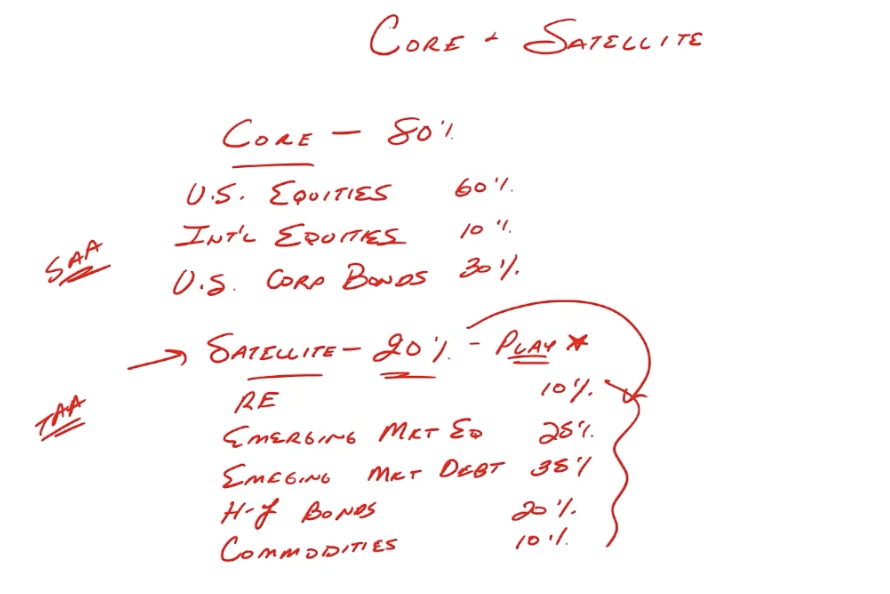 CORE + SATELLITE
CORE - 80%
U.S. EQUITIES 60%.
INT'L EQUITIES 10%.
SAA
U.S. CORP BONDS 30%.
SATELLITE - 20%. - PLAY *
RE 10%.
TAA
EMERGING MKT EQ 25%.
EMEGING MKT DEBT 35%
H-Y BONDS 20%.
COMMODITIES 10%.